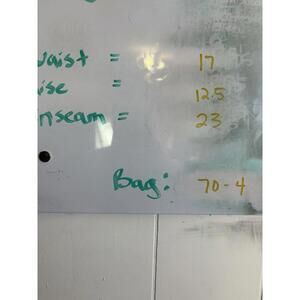 waist = 17
ise = 12.5
nseam = 23
Bag: 70-4